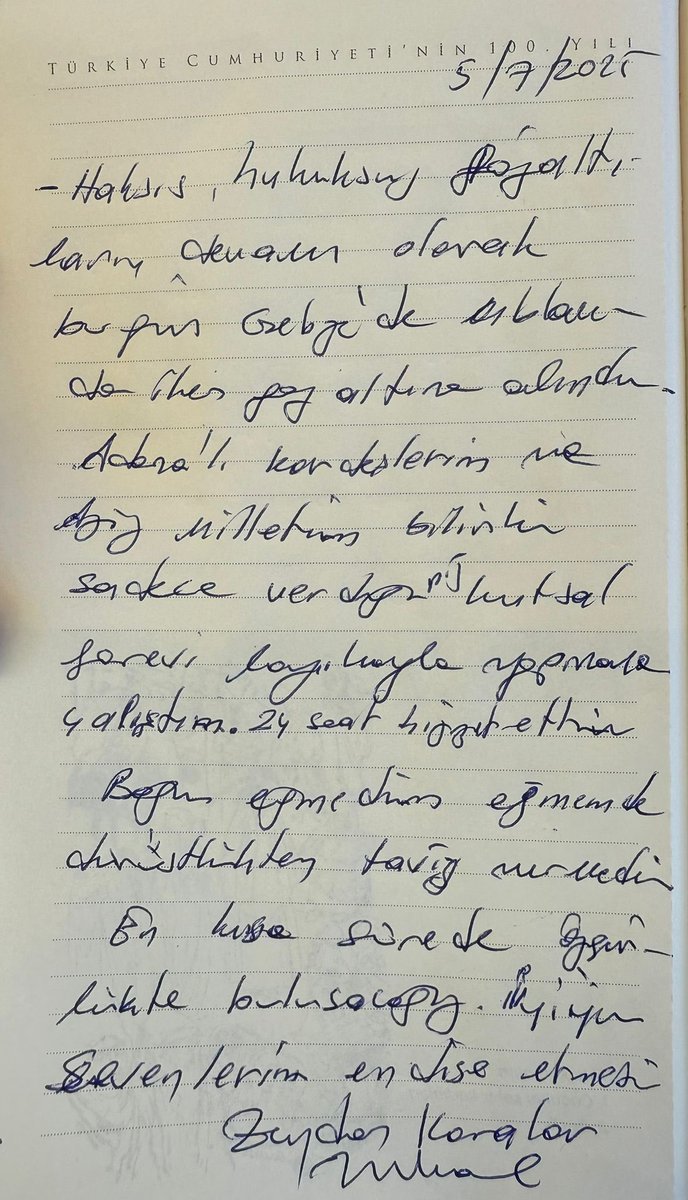 TÜRKİYE CUMHURİYETİ'NİN 100. YILI
5/7/2025
- Haksız, hukuksuz gözaltı-
ların devamı olarak
bugün Gebze'de
göz altına alındım.
Adana'lı kardeşlerim ve
aziz milletim bilirki
sadece verdiğiniz kutsal
görevi layıkıyla yapmaya
çalıştım. 24 saat hizmet ettim
Boyun eğmedim eğmemde
dürüstlükten taviz vermedim
En kısa sürede özgür-
lükte buluşacağız. İyiyim
Sevenlerim endişe etmesin
Zeydan Karalar